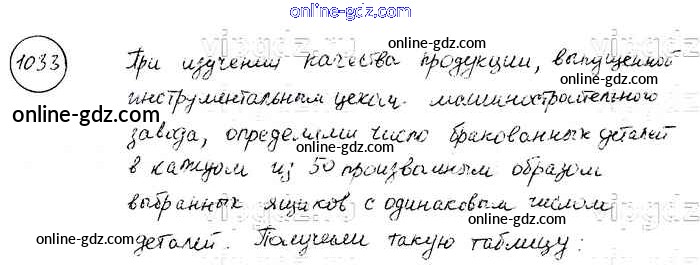 online-gdz.com
1033 При изучении качества продукции, выпущенной
online-gdz.com
инструментальным цехом машиностроительного
online-gdz.com online-gdz.com
завода, определяли число бракованных деталей
в каждом из 50 произвольным образом
online-gdz.com
выбранных ящиков с одинаковым числом
online-gdz.com
деталей. Получили такую таблицу:
online-gdz.com online-gdz.com